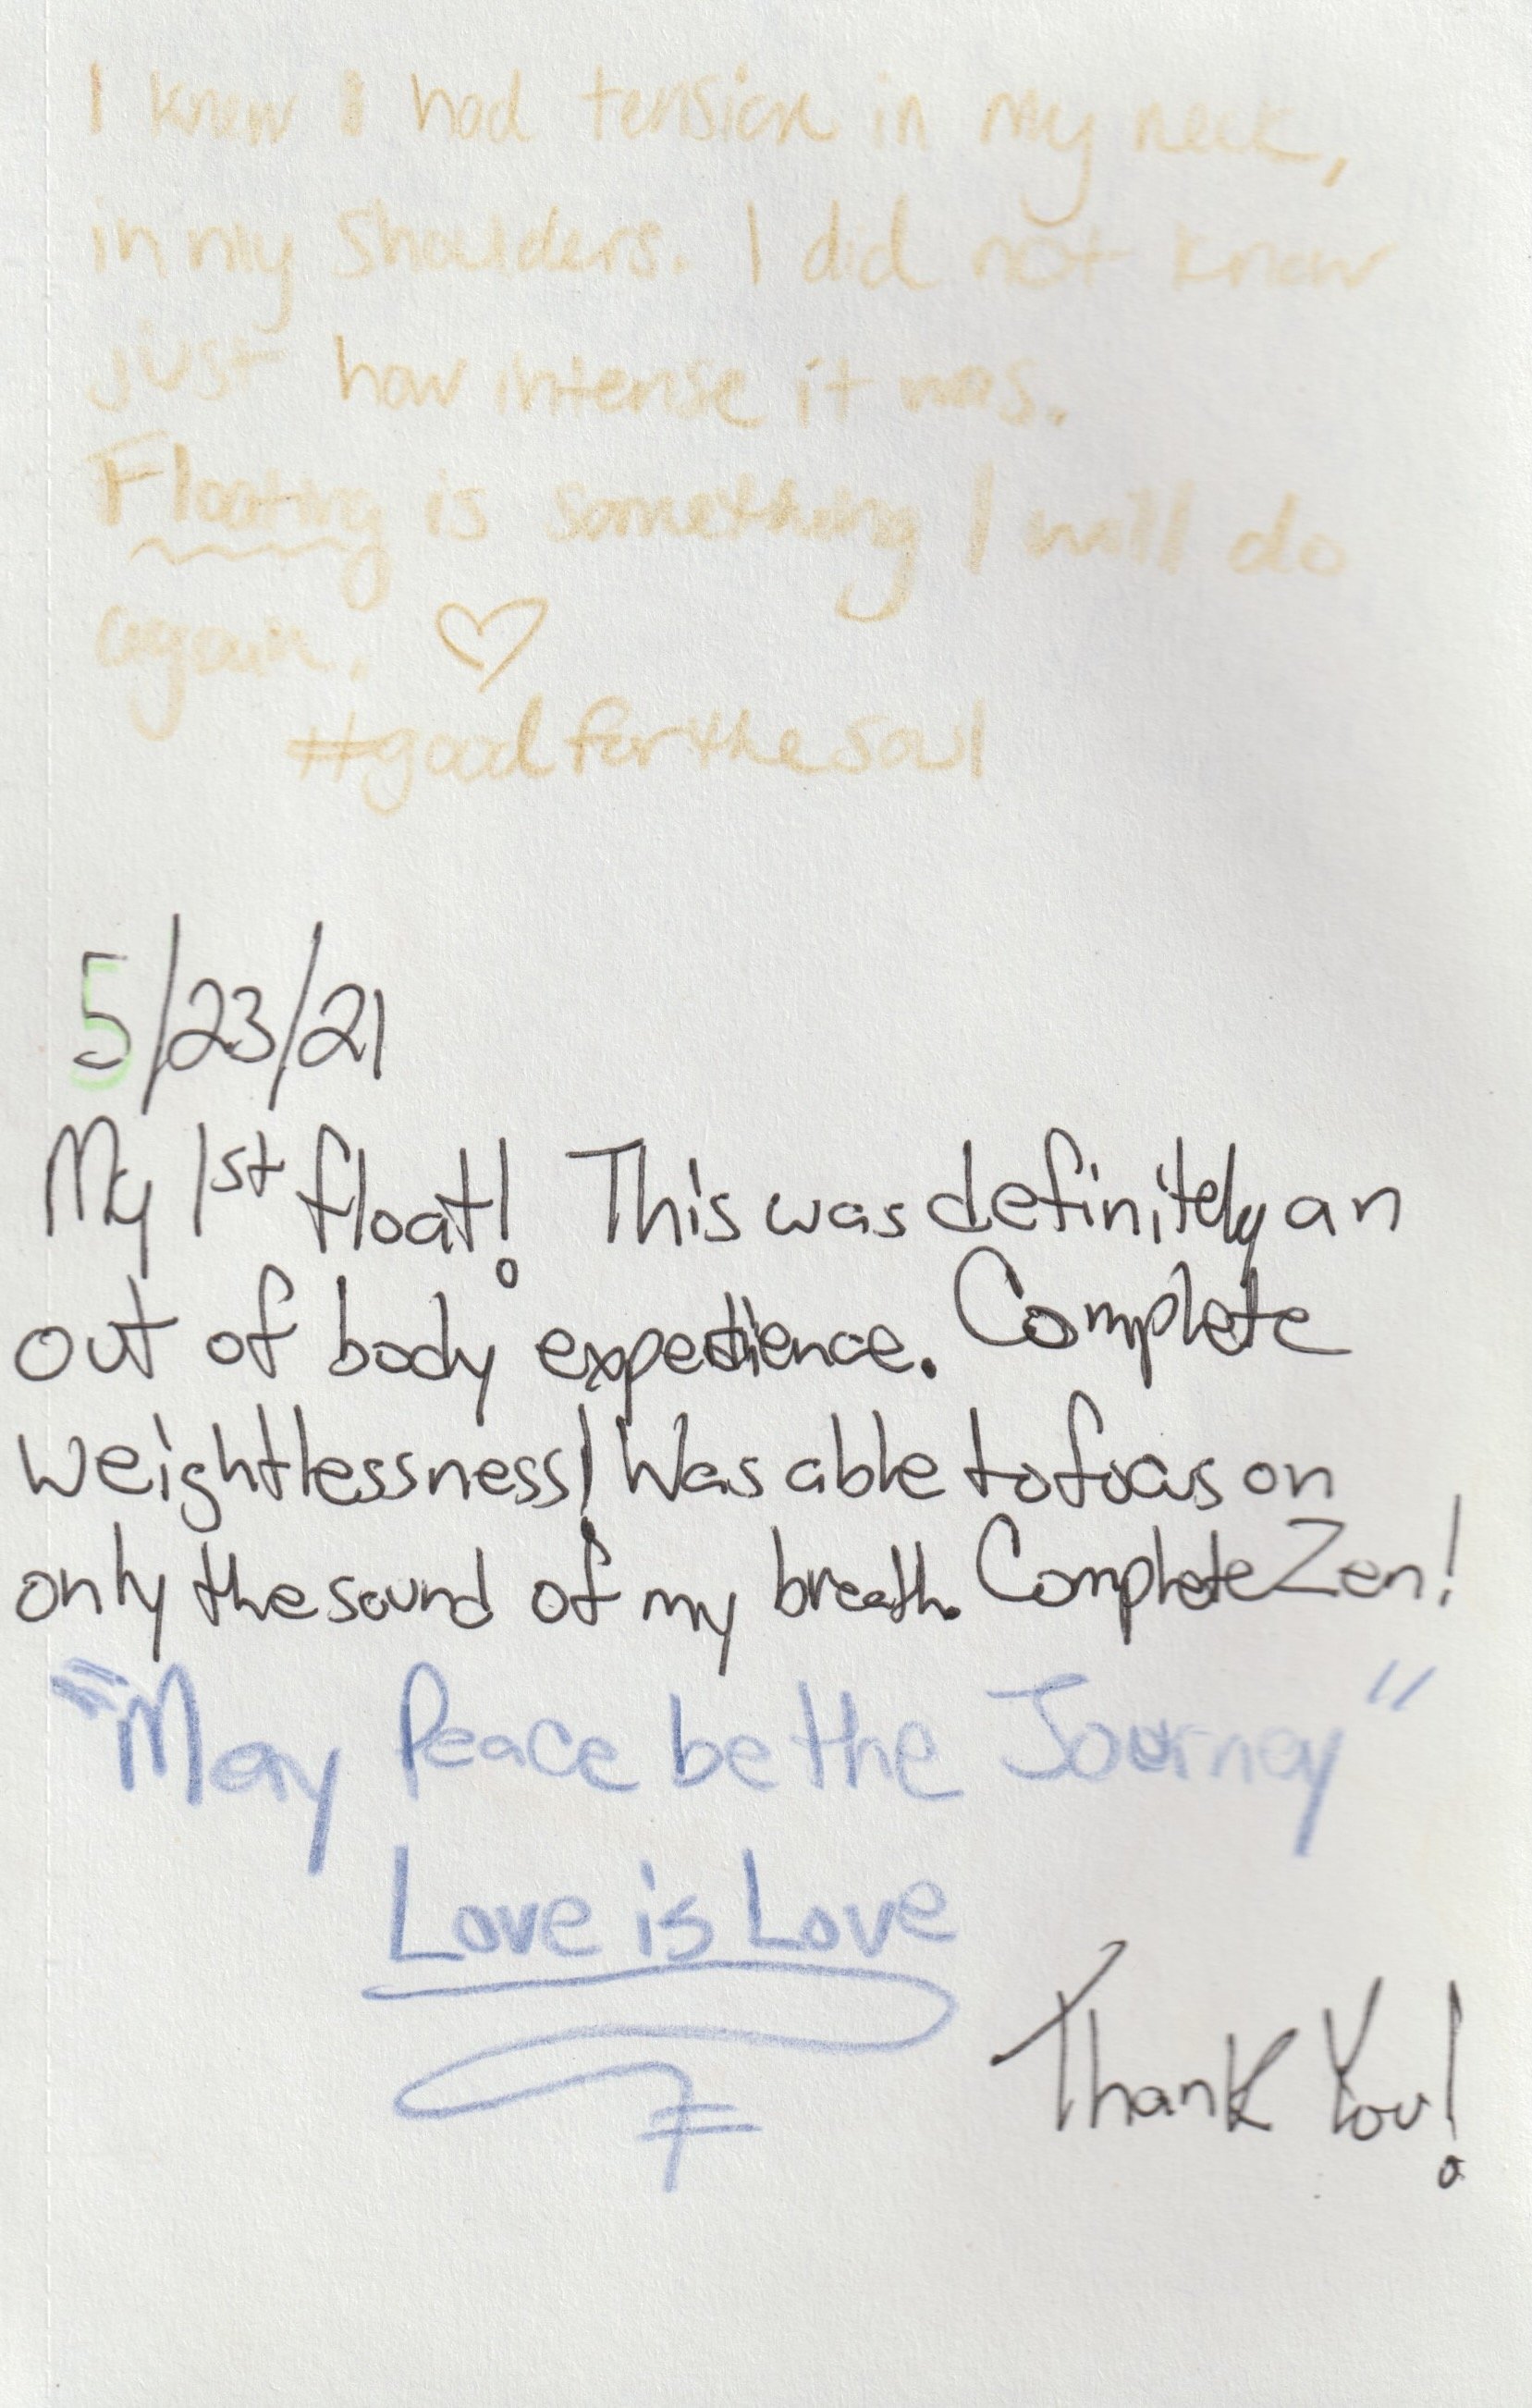 I knew I had tension in my neck,
in my shoulders. I did not know
just how intense it was.
Floating is something I will do
again. ♡
#goodforthesoul
5/23/21
My 1st float! This was definitely an
out of body experience. Complete
weightlessness! Was able to focus on
only the sound of my breath. Complete Zen!
"May Peace be the Journey"
Love is Love
Thank You!